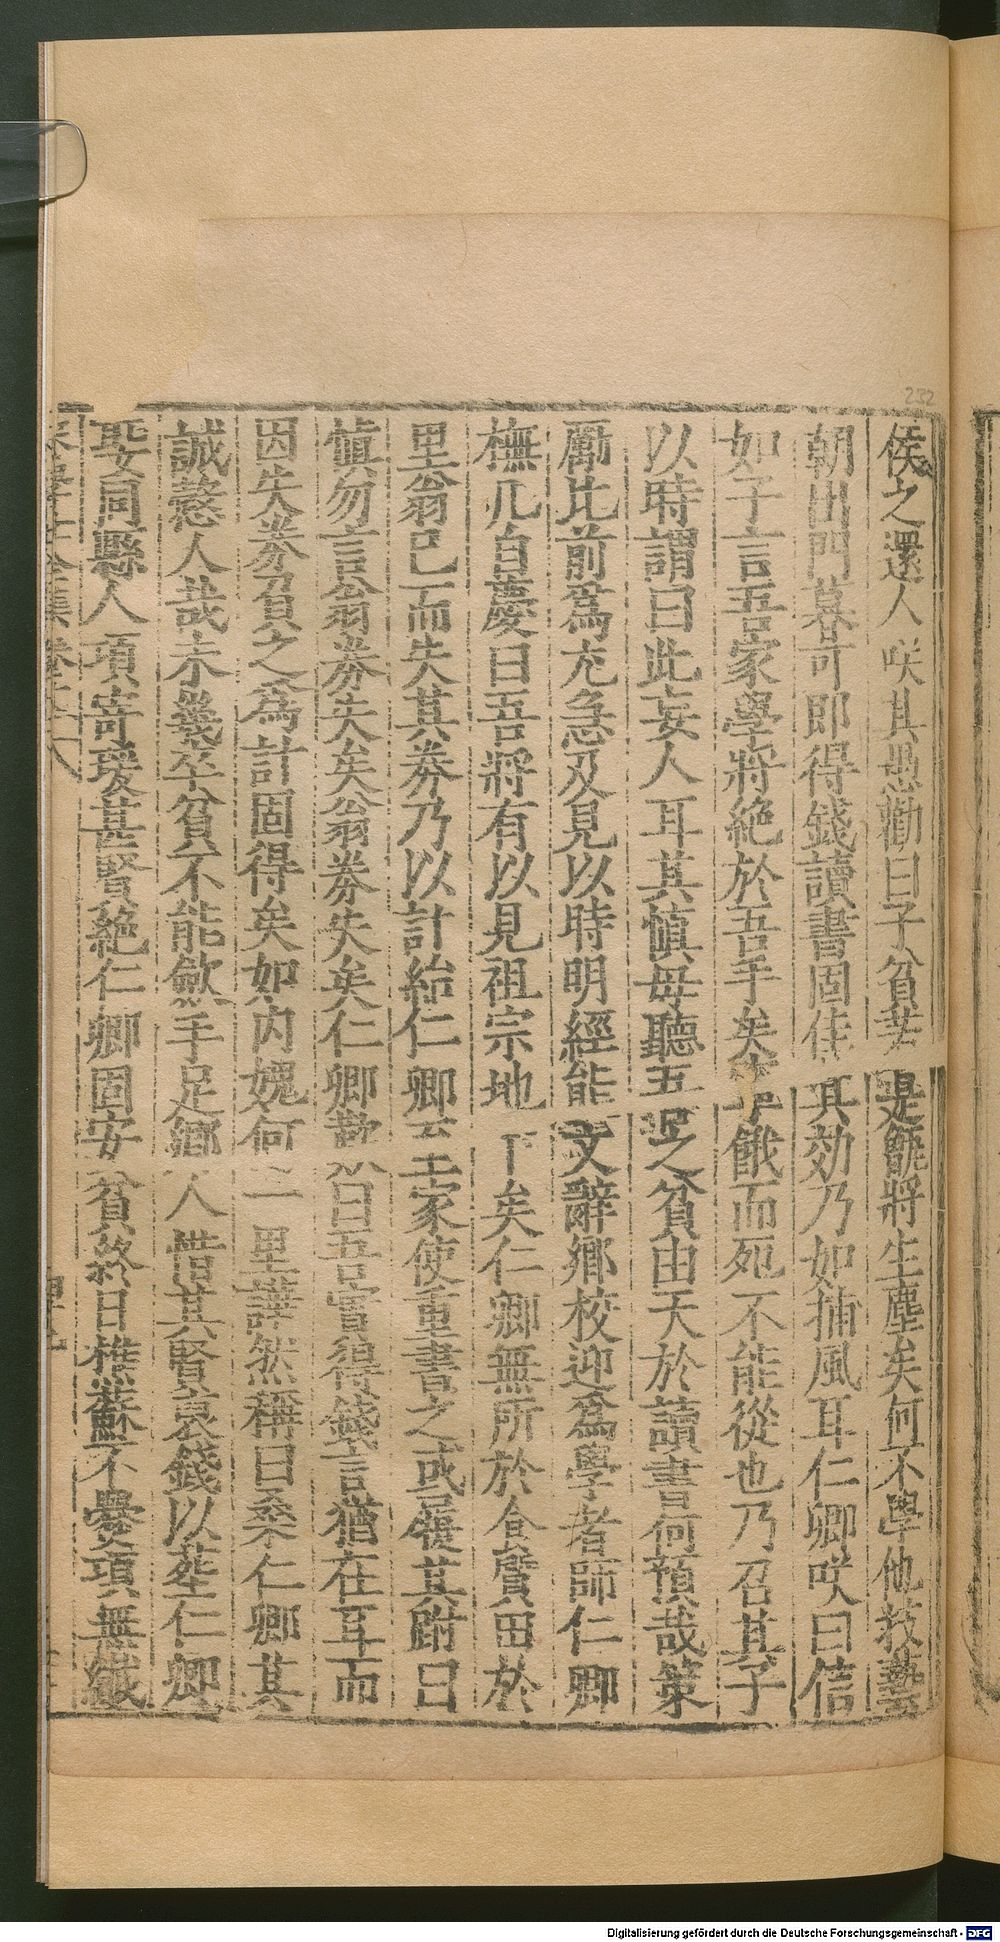 232
侯之還人咲其愚勸曰子貧甚是甑將生塵矣何不學他技藝
朝出門暮可即得錢讀書固佳其効乃如捕風耳仁卿咲曰信
如子言吾家學將絶於吾手矣寧餓而死不能從也乃召其子
以時謂曰此妄人耳其慎毋聽五足之貧由天於讀書何預哉策
勵比前爲尤急及見以時明經能文辭鄉校迎爲學者師仁卿
撫几自慶曰吾將有以見祖宗地下矣仁卿無所於食鬻田於
里翁已而失其券乃以計紿仁卿云王家使重書之或躡其跗曰
慎勿言翁券失矣翁券失矣仁卿歎曰吾嘗得錢言猶在耳而
因失券負之爲計固得矣如内媿何一里譁然稱曰桑仁卿其
誠慤人哉未幾卒貧不能斂手足鄉人惜其賢裒錢以葬仁卿
娶同縣人項寄瑗甚賢絶仁卿固安貧終日樵蘇不爨項無纎
Digitalisierung gefördert durch die Deutsche Forschungsgemeinschaft - DFG